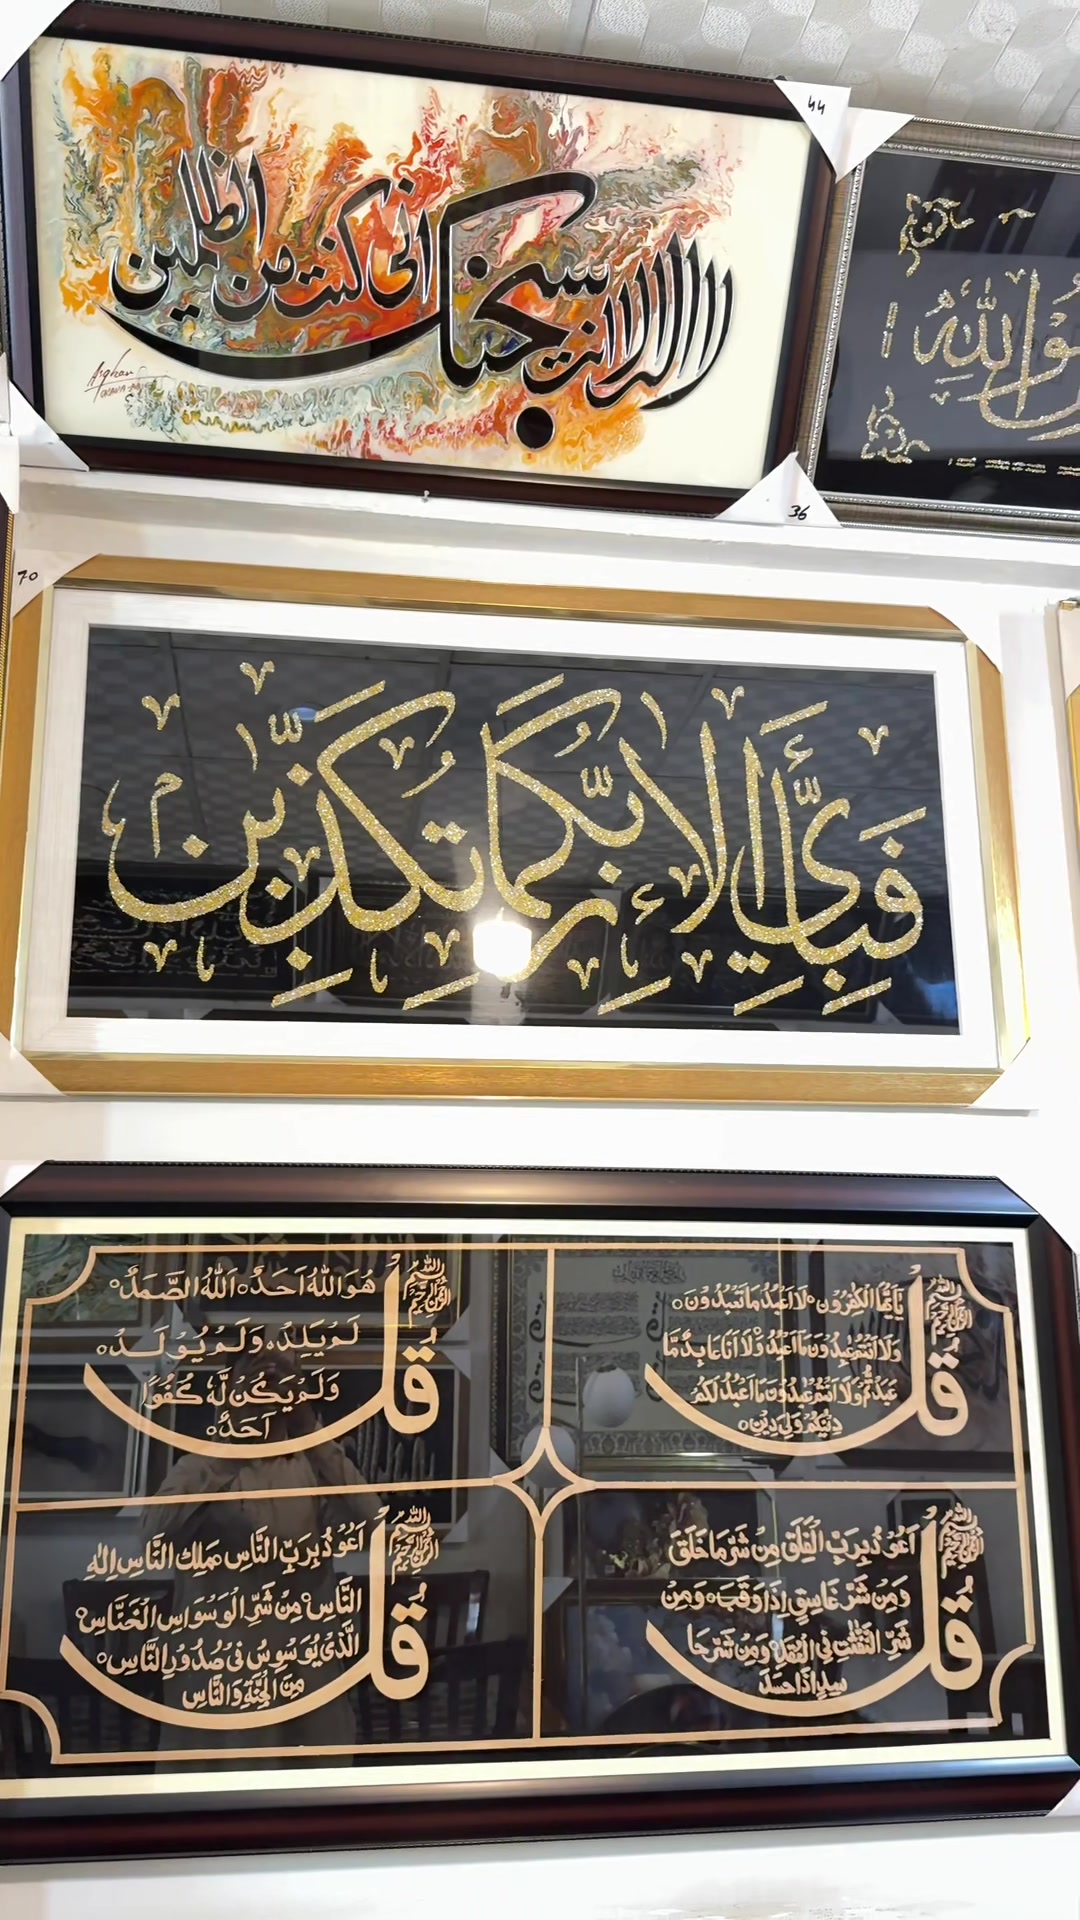 44
لا اله الا انت سبحانك اني كنت من الظالمين
Asghar
36
70
فَبِأَيِّ آلَاءِ رَبِّكُمَا تُكَذِّبٰنِ
بسم الله الرحمن الرحيم
قُل
يٰاَيُّهَا الْكٰفِرُوْنَ ۙ لَا اَعْبُدُ مَا تَعْبُدُوْنَ ۙ
وَلَا اَنْتُمْ عٰبِدُوْنَ مَا اَعْبُدُ ۚ وَلَا اَنَا عَابِدٌ مَّا
عَبَدْتُّمْ وَلَا اَنْتُمْ عٰبِدُوْنَ مَا اَعْبُدُ لَكُمْ
دِيْنُكُمْ وَلِيَ دِيْنِ
بسم الله الرحمن الرحيم
قُل
هُوَ اللّٰهُ اَحَدٌ ۚ اَللّٰهُ الصَّمَدُ ۚ
لَمْ يَلِدْ ۙ وَلَمْ يُوْلَدْ ۙ
وَلَمْ يَكُنْ لَّهٗ كُفُوًا
اَحَدٌ
بسم الله الرحمن الرحيم
قُل
اَعُوْذُ بِرَبِّ الْفَلَقِ مِنْ شَرِّ مَا خَلَقَ
وَمِنْ شَرِّ غَاسِقٍ اِذَا وَقَبَ ۙ وَمِنْ
شَرِّ النَّفّٰثٰتِ فِي الْعُقَدِ وَمِنْ شَرِّ حَا
سِدٍ اِذَا حَسَدَ
بسم الله الرحمن الرحيم
قُل
اَعُوْذُ بِرَبِّ النَّاسِ مَلِكِ النَّاسِ اِلٰهِ
النَّاسِ ۙ مِنْ شَرِّ الْوَسْوَاسِ الْخَنَّاسِ ۙ
الَّذِيْ يُوَسْوِسُ فِيْ صُدُوْرِ النَّاسِ ۙ
مِنَ الْجِنَّةِ وَالنَّاسِ